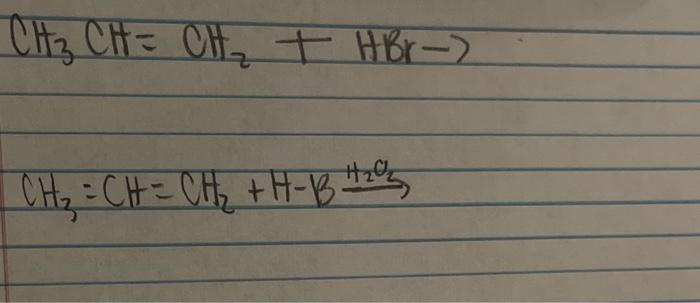 CH₃ CH = CH₂ + HBr →
CH₃ = CH = CH₂ + H-B H₂O₂ →